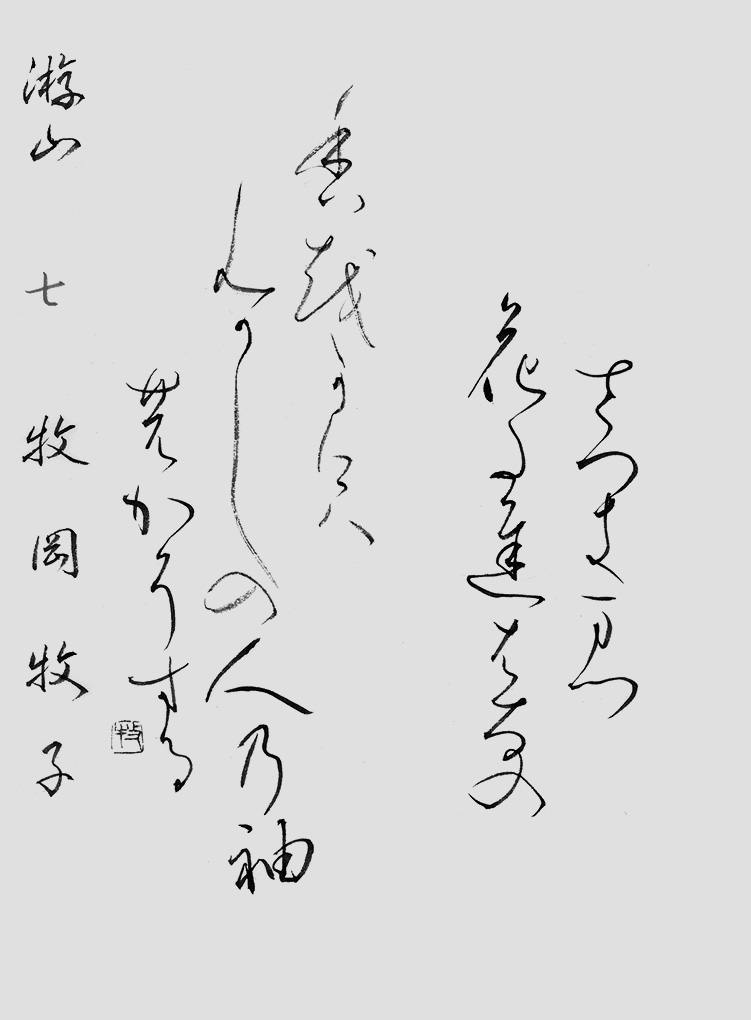 さつきまつ
花たちばなの
香をかげば
むかしの人乃袖
のかぞする
游山 七 牧岡牧子